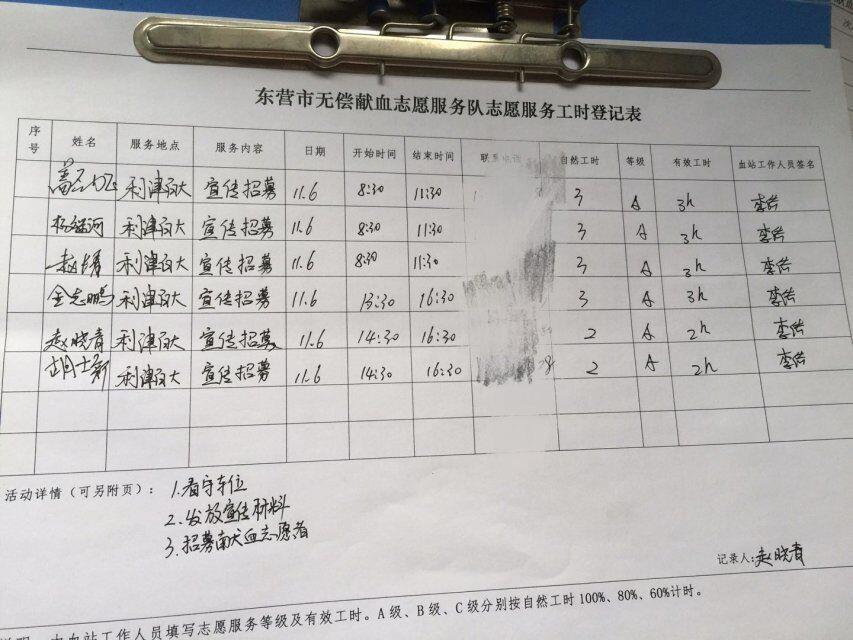 东营市无偿献血志愿服务队志愿服务工时登记表
序号 姓名 服务地点 服务内容 日期 开始时间 结束时间 联系电话 自然工时 等级 有效工时 血站工作人员签名
利津百大 宣传招募 11.6 8:30 11:30 3 A 3h 李浩
杨继河 利津百大 宣传招募 11.6 8:30 11:30 3 A 3h 李浩
赵靖 利津百大 宣传招募 11.6 8:30 11:30 3 A 3h 李浩
金志鹏 利津百大 宣传招募 11.6 13:30 16:30 3 A 3h 李浩
赵晓青 利津百大 宣传招募 11.6 14:30 16:30 2 A 2h 李浩
胡士新 利津百大 宣传招募 11.6 14:30 16:30 2 A 2h 李浩
活动详情(可另附页): 1.看守车位
2.发放宣传材料
3.招募献血志愿者
记录人:赵晓青
由血站工作人员填写志愿服务等级及有效工时。A级、B级、C级分别按自然工时100%、80%、60%计时。